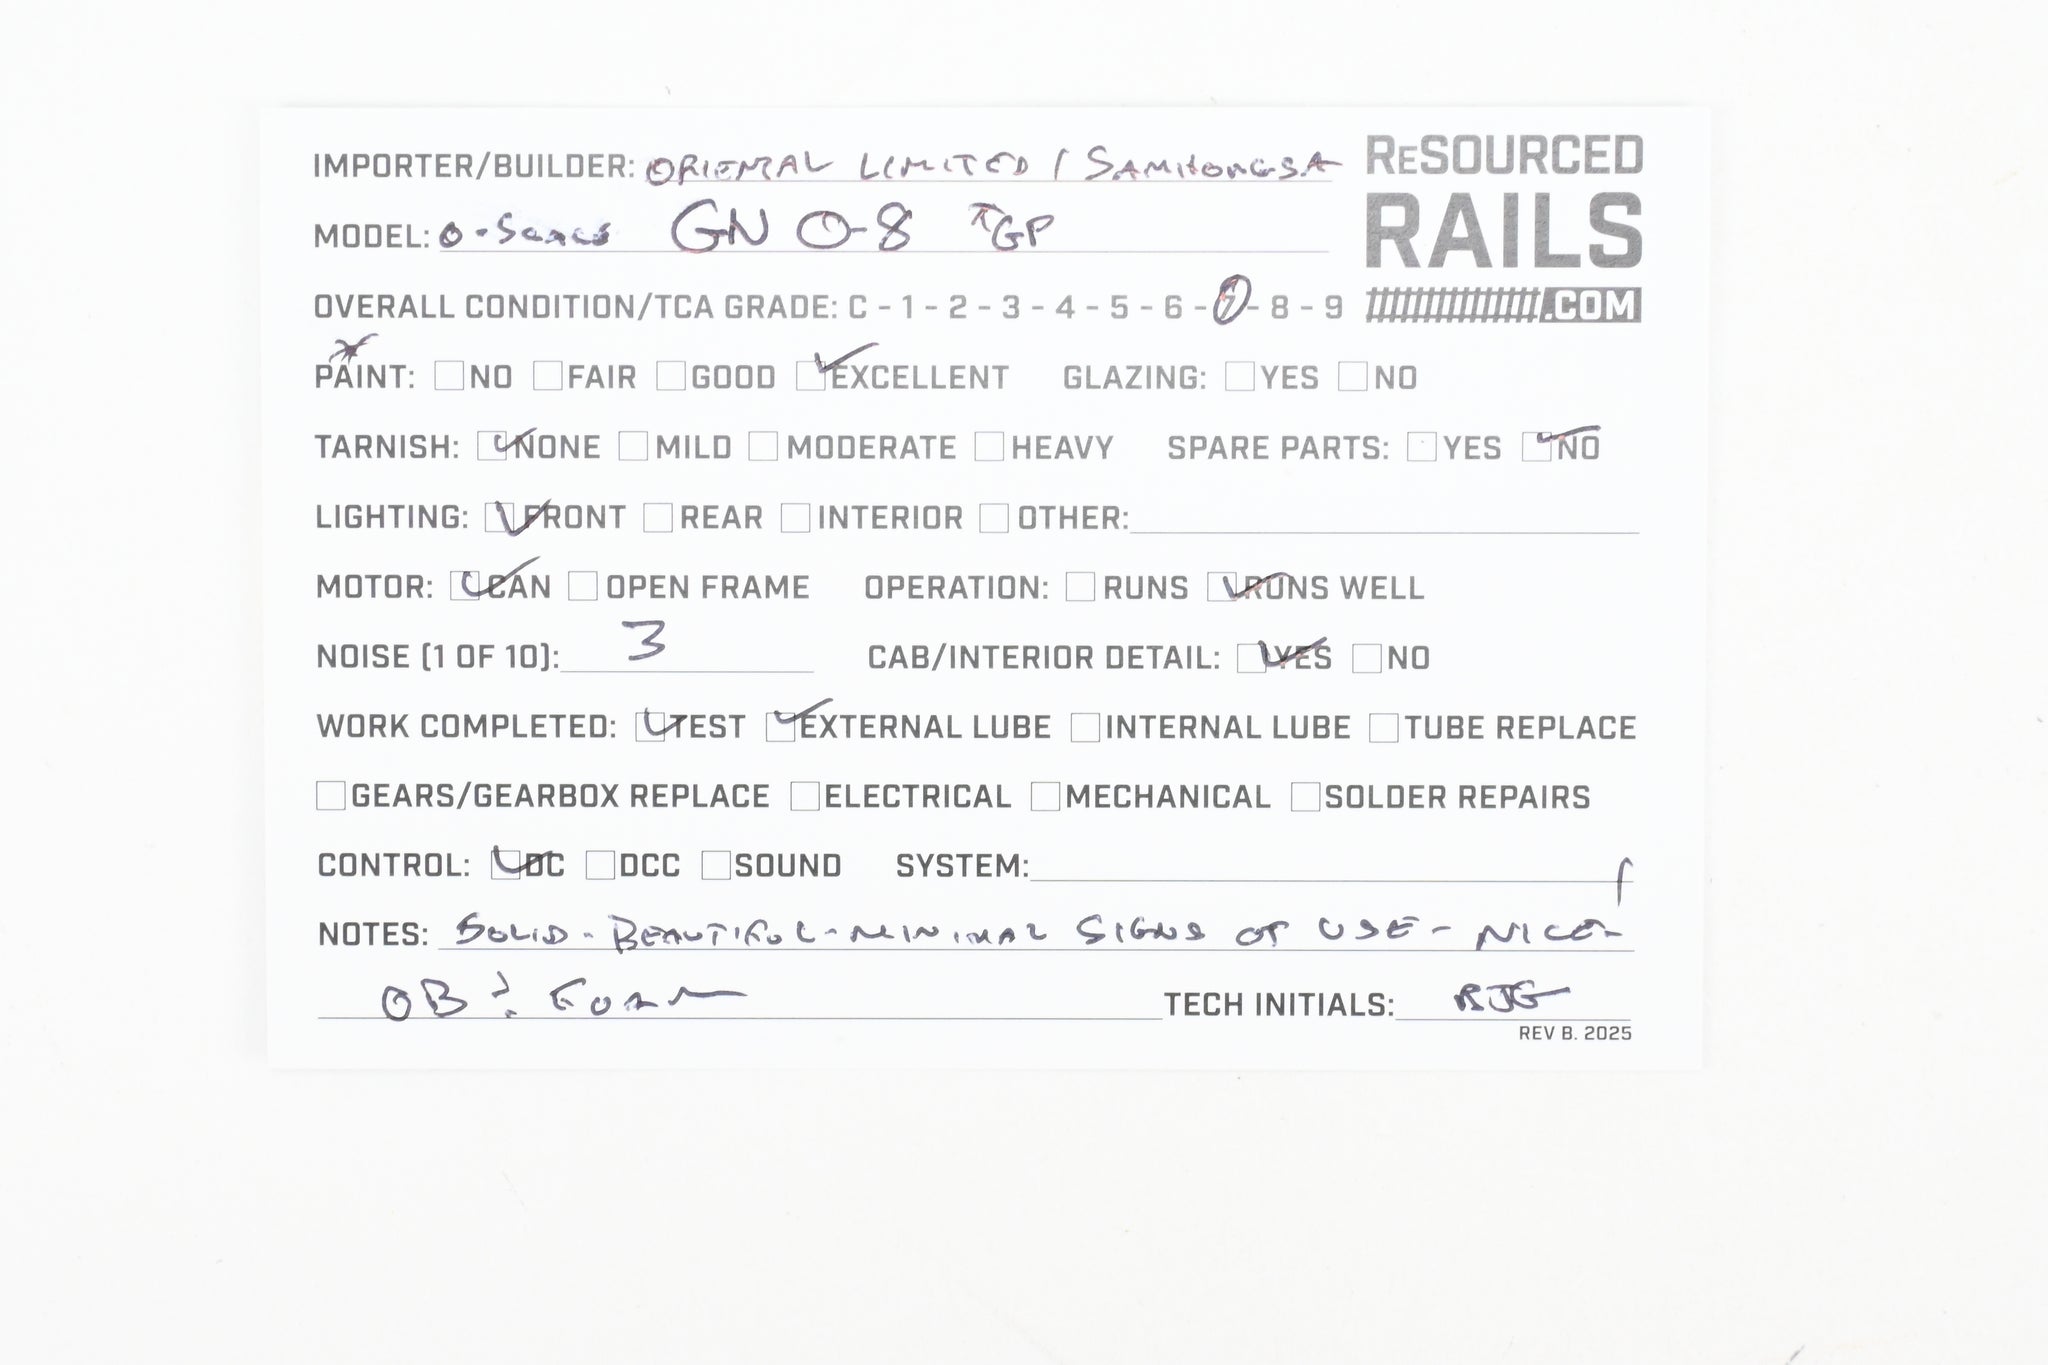 IMPORTER/BUILDER: ORIENTAL LIMITED / SAMHONGSA
RESOURCED
RAILS
.COM
MODEL: O-SCALE GN O-8 GP
OVERALL CONDITION/TCA GRADE: C - 1 - 2 - 3 - 4 - 5 - 6 - 7 - 8 - 9
PAINT: NO FAIR GOOD EXCELLENT GLAZING: YES NO
TARNISH: NONE MILD MODERATE HEAVY SPARE PARTS: YES NO
LIGHTING: FRONT REAR INTERIOR OTHER:
MOTOR: CAN OPEN FRAME OPERATION: RUNS RUNS WELL
NOISE (1 OF 10): 3 CAB/INTERIOR DETAIL: YES NO
WORK COMPLETED: TEST EXTERNAL LUBE INTERNAL LUBE TUBE REPLACE
GEARS/GEARBOX REPLACE ELECTRICAL MECHANICAL SOLDER REPAIRS
CONTROL: DC DCC SOUND SYSTEM:
NOTES: SOLID - BEAUTIFUL - MINIMAL SIGNS OF USE - NICE -
OB & FOAM TECH INITIALS: RJG
REV B. 2025